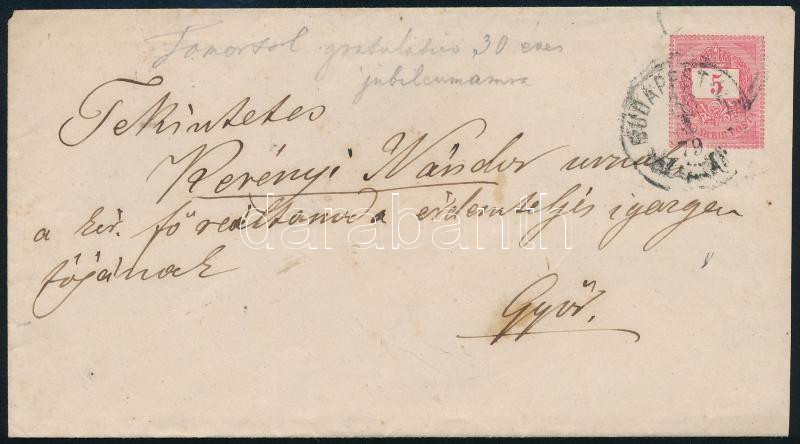 gratulatio 30 éves
jubileumamra
Tekintetes
Kerényi Nándor urnak
a kir. főreáltanoda érdemteljes igazgató
jának
Győr.
5
BUDAPEST
19
darabanth